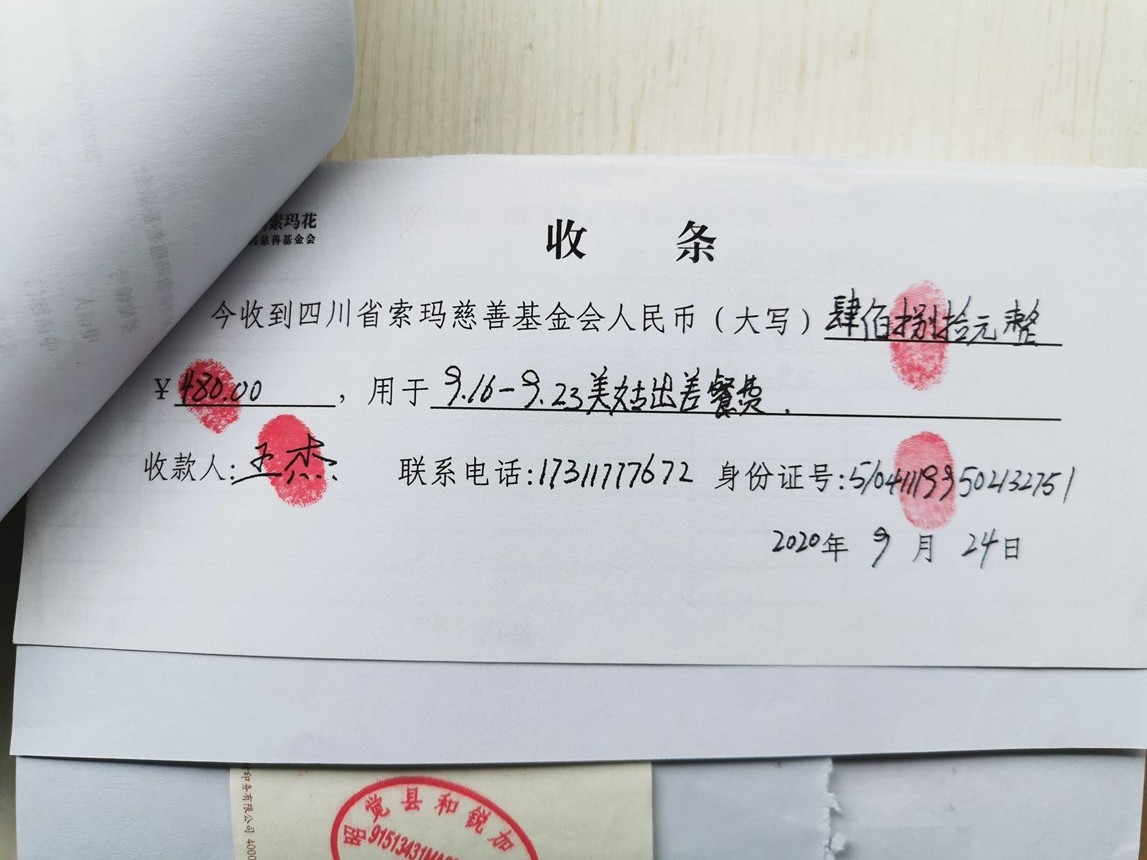 索玛花
慈善基金会
收 条
今收到四川省索玛慈善基金会人民币（大写）肆佰捌拾元整
¥480.00，用于9.16-9.23美姑出差餐费.
收款人:王杰 联系电话:17311777672 身份证号:510411199502132751
2020年 9 月 24日
印务有限公司 4000
昭觉县和锐加
91513431MA